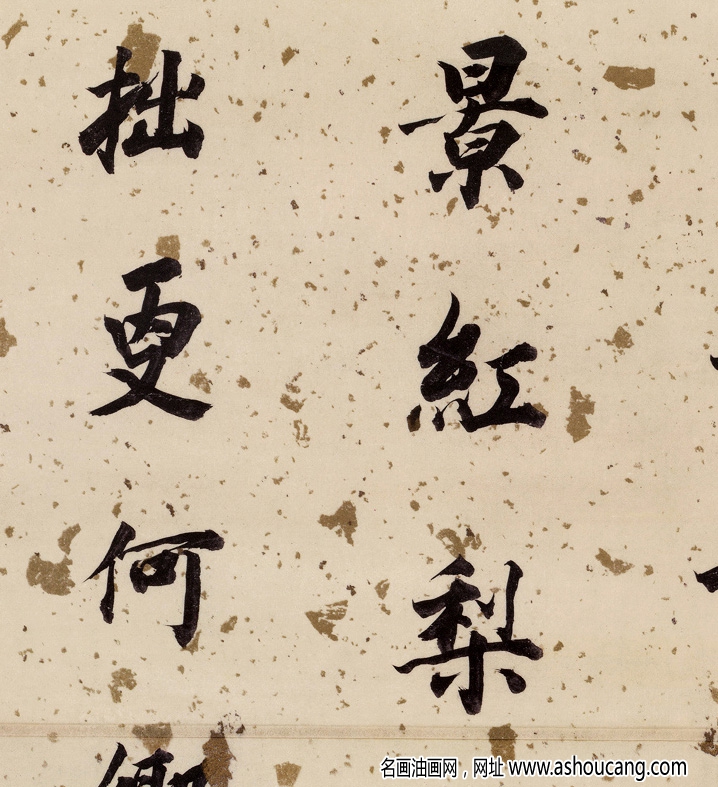 景紅梨
拙更何
名画油画网，网址 www.ashoucang.com